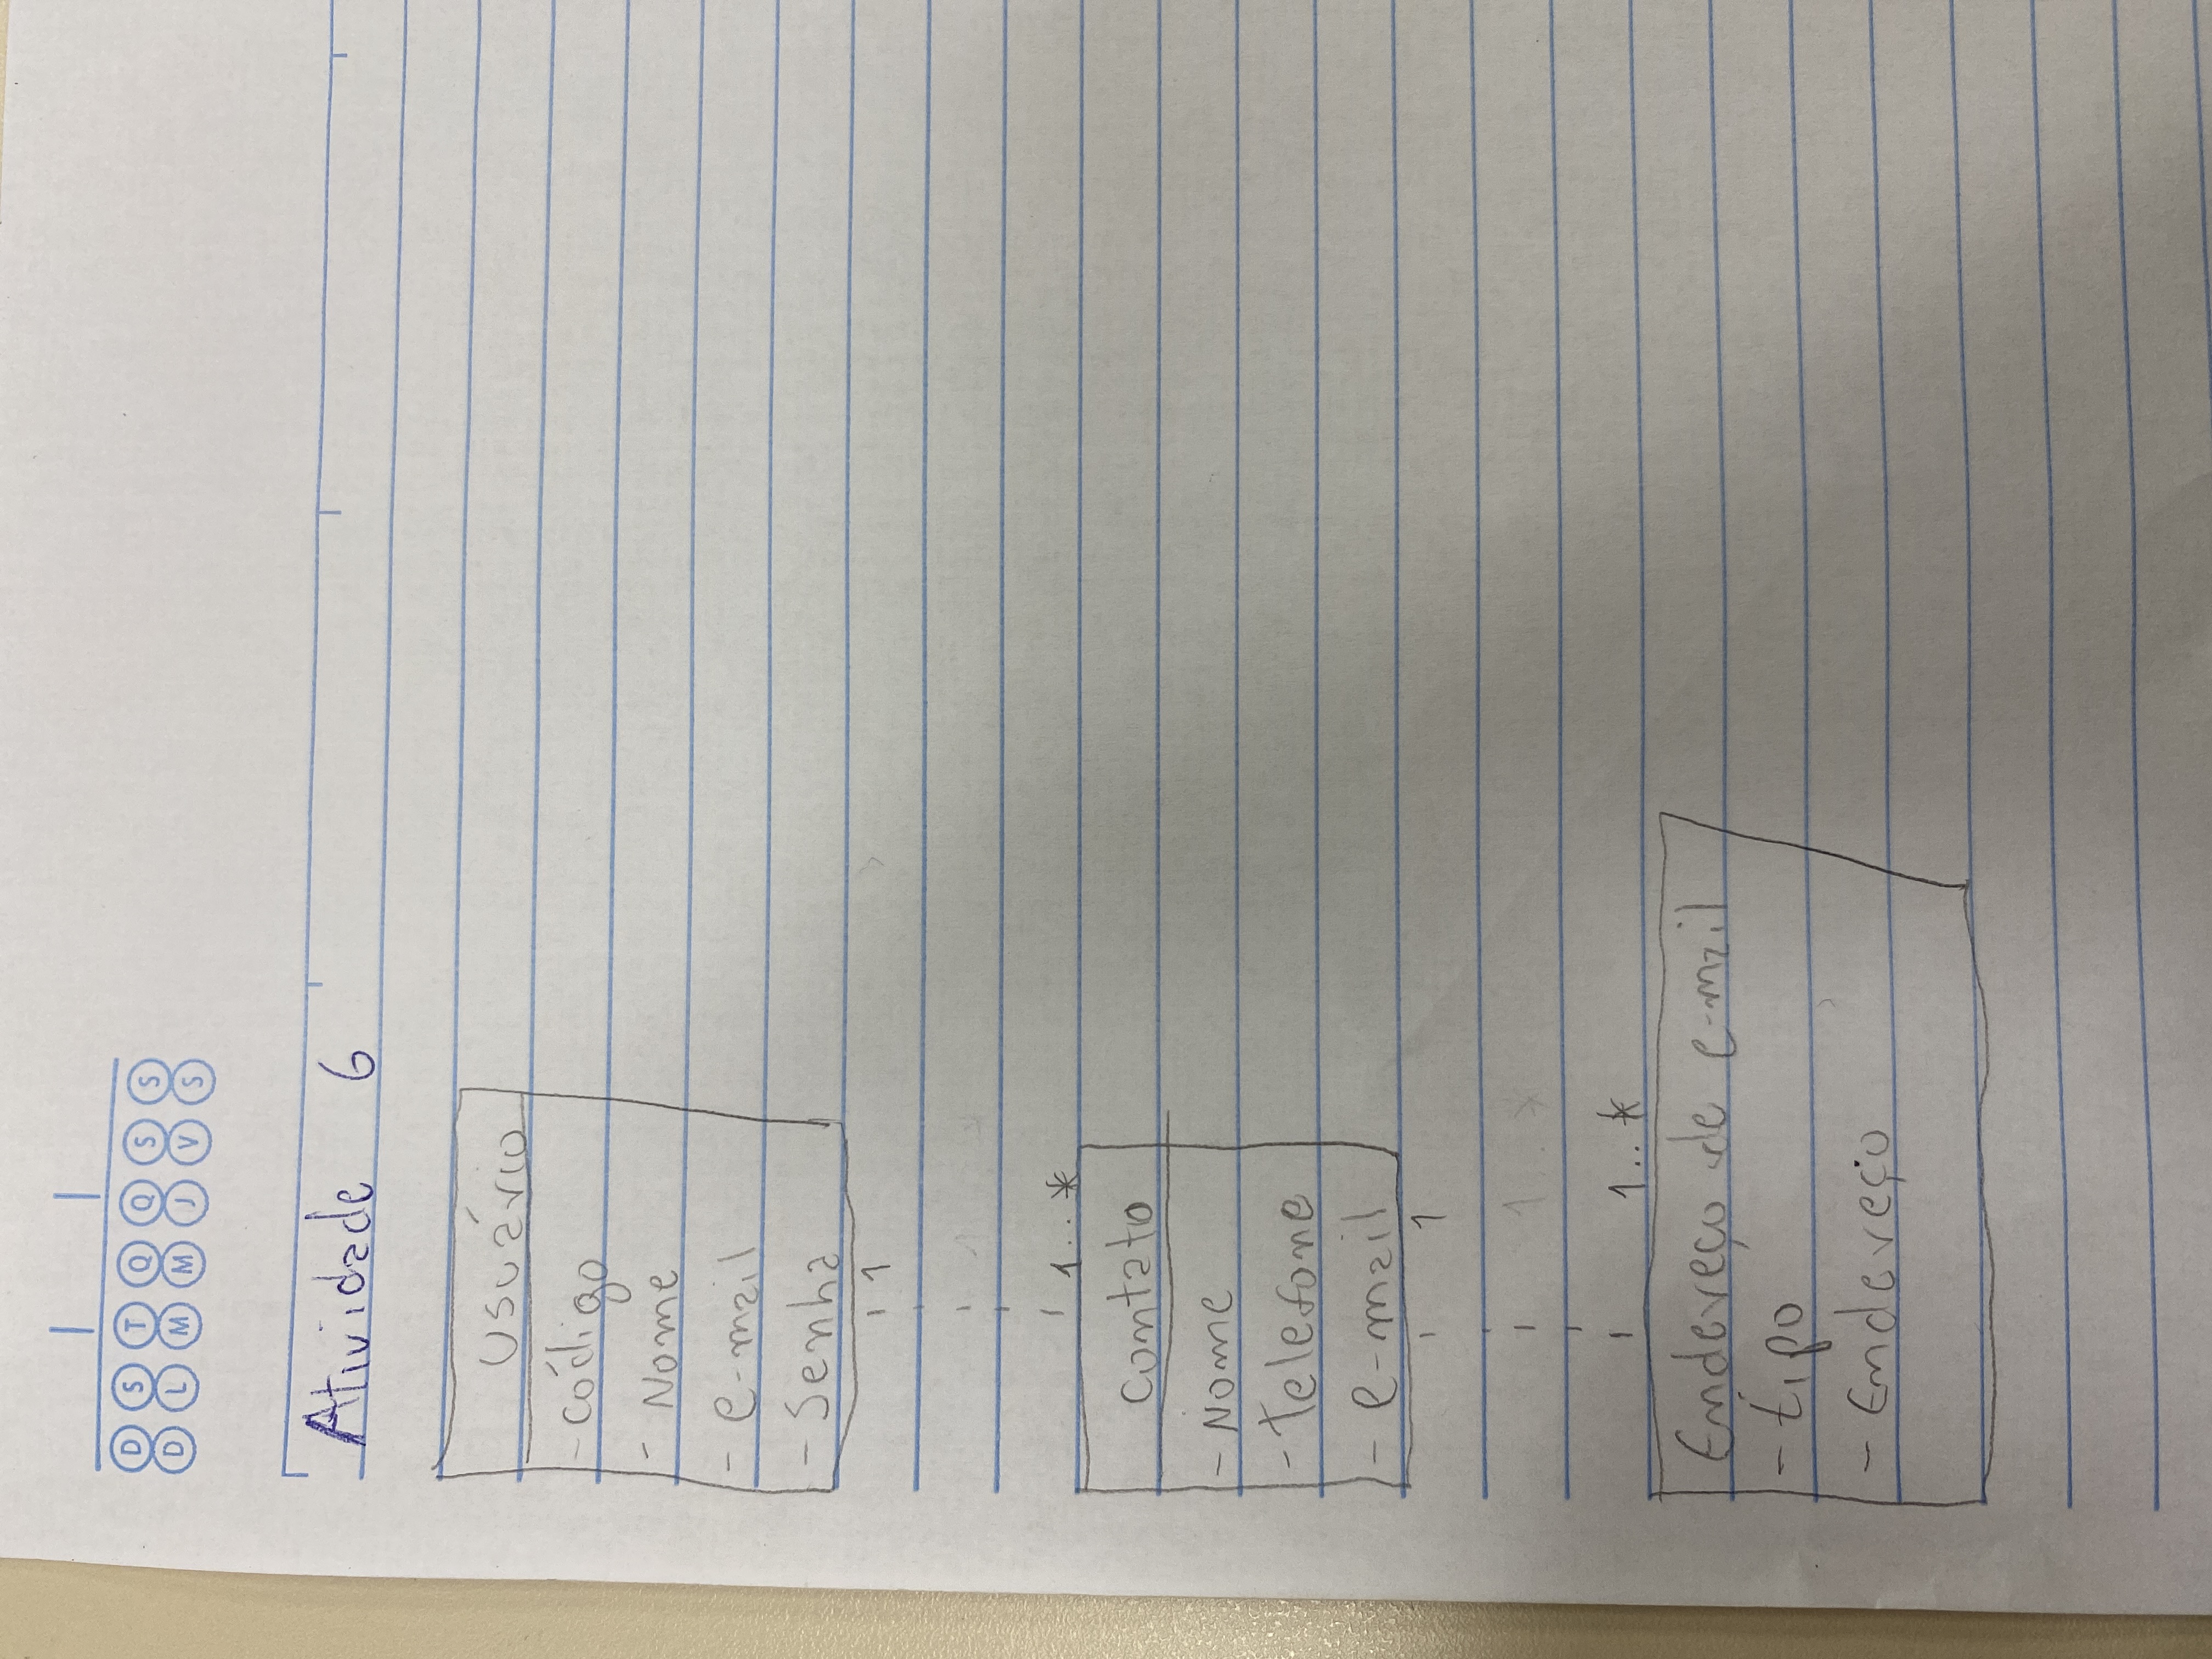 D S T Q Q S S
D L M M J V S
Atividade 6
Usuário
- Código
- Nome
- e-mail
- Senha
1
1..*
Contato
- Nome
- Telefone
- e-mail
1
1..*
1..*
Endereço de e-mail
- tipo
- Endereço